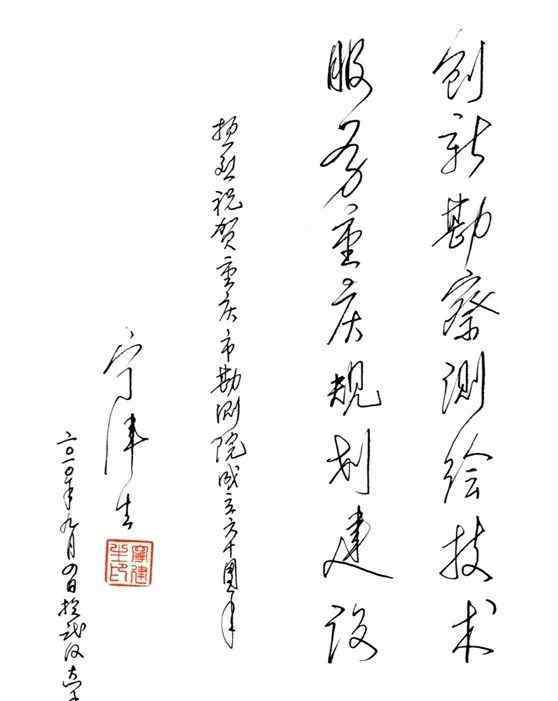 创新勘察测绘技术
服务重庆规划建设
热烈祝贺重庆市勘测院成立六十周年
宁津生
二〇一〇年九月四日于武汉大学
宁津生印